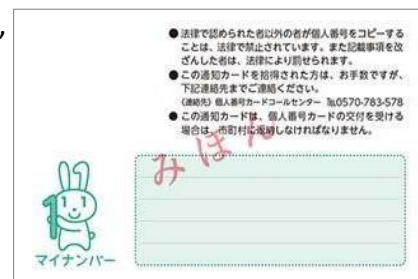 ● 法律で認められた者以外の者が個人番号をコピーする
ことは、法律で禁止されています。また記載事項を改
ざんした者は、法律により罰せられます。
● この通知カードを拾得された方は、お手数ですが、
下記連絡先までご連絡ください。
〈連絡先〉個人番号カードコールセンター ℡0570-783-578
● この通知カードは、個人番号カードの交付を受ける
場合は、市町村に返納しなければなりません。
みほん
1
マイナンバー